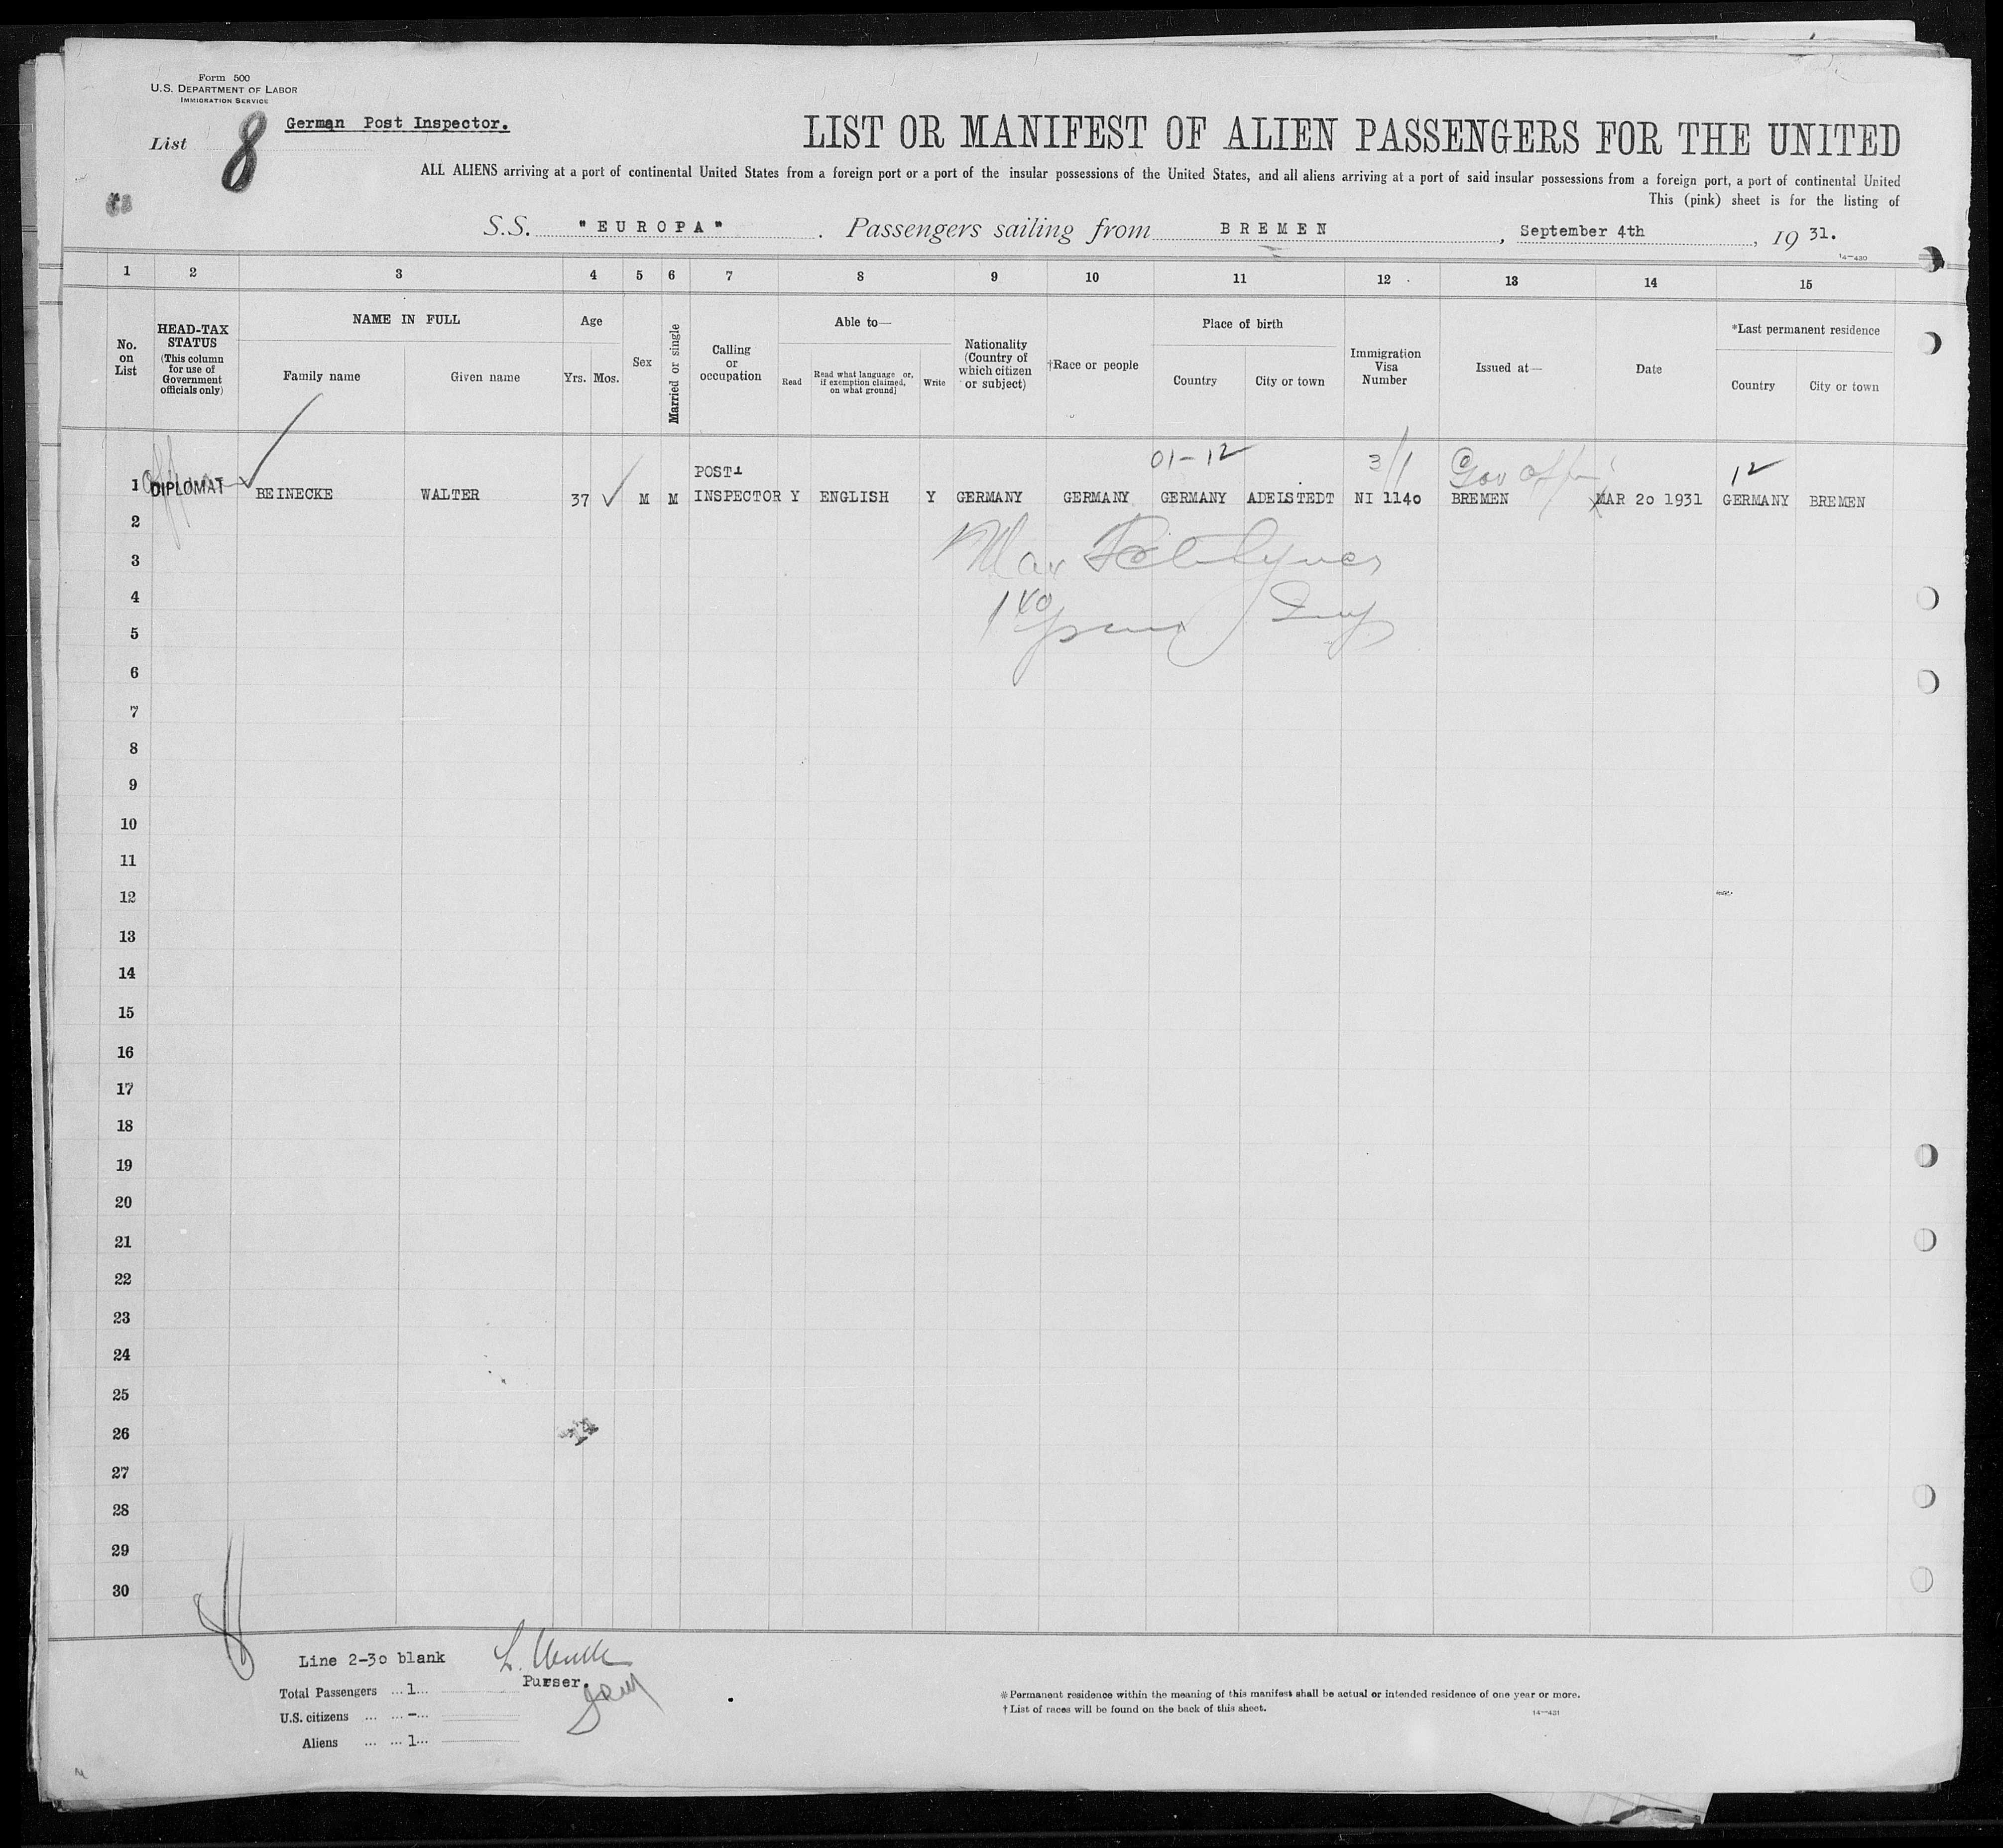 Form 500
U.S. DEPARTMENT OF LABOR
IMMIGRATION SERVICE
List 8 German Post Inspector.
LIST OR MANIFEST OF ALIEN PASSENGERS FOR THE UNITED
ALL ALIENS arriving at a port of continental United States from a foreign port or a port of the insular possessions of the United States, and all aliens arriving at a port of said insular possessions from a foreign port, a port of continental United
This (pink) sheet is for the listing of
S.S. "EUROPA". Passengers sailing from BREMEN, September 4th, 19 31.
14—430
1 2 3 4 5 6 7 8 9 10 11 12 13 14 15
No. on List
HEAD-TAX STATUS (This column for use of Government officials only)
NAME IN FULL
Family name Given name
Age
Yrs. Mos.
Sex
Married or single
Calling or occupation
Able to—
Read Read what language or, if exemption claimed, on what ground] Write
Nationality (Country of which citizen or subject)
†Race or people
Place of birth
Country City or town
Immigration Visa Number
Issued at—
Date
*Last permanent residence
Country City or town
01-12 3/1 Gov 12
1 DIPLOMAT BEINECKE WALTER 37 M M POST- INSPECTOR Y ENGLISH Y GERMANY GERMANY GERMANY ADELSTEDT NI 1140 BREMEN MAR 20 1931 GERMANY BREMEN
2
Max
3
140
4
5
6
7
8
9
10
11
12
13
14
15
16
17
18
19
20
21
22
23
24
25
26
27
28
29
30
Line 2-30 blank
Purser.
Total Passengers ... 1 ...
U.S. citizens ... ... - ...
Aliens ... ... 1 ...
* Permanent residence within the meaning of this manifest shall be actual or intended residence of one year or more.
† List of races will be found on the back of this sheet.
14—431